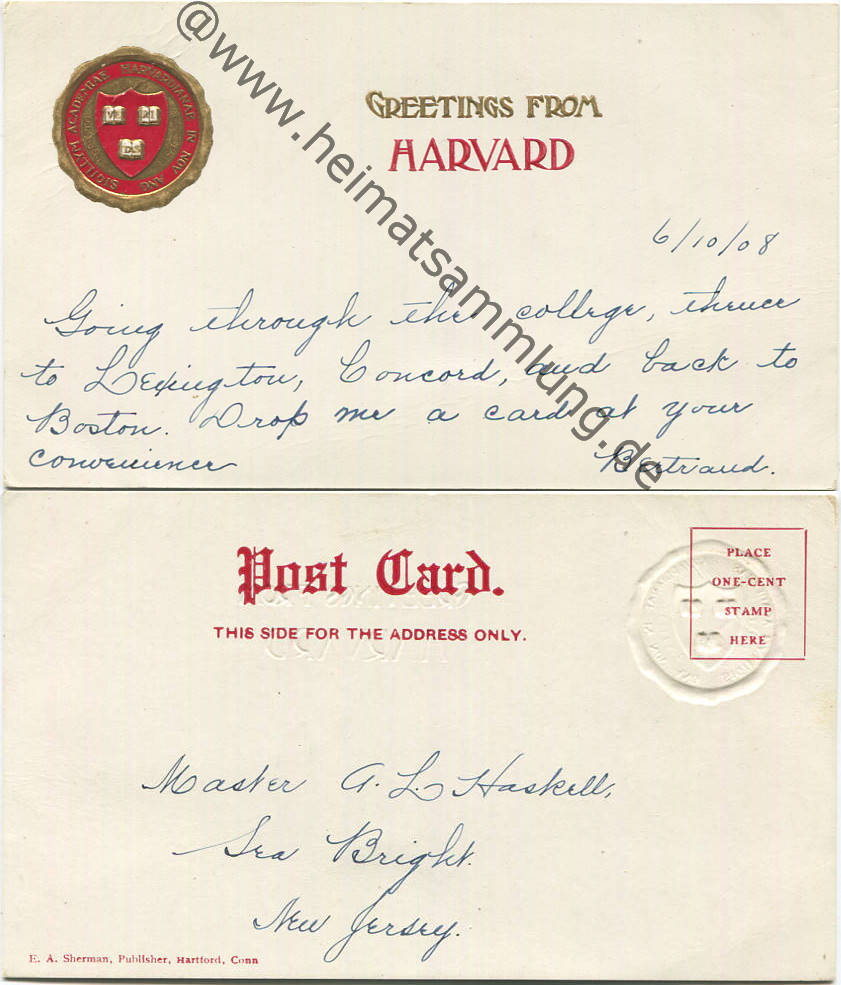 SIGILLVM ACADEMIAE HARVARDIANAE IN NOV ANG
VE RI
TAS
GREETINGS FROM
HARVARD
@www.heimatsammlung.de
6/10/08
Going through the college, thence
to Lexington, Concord, and back to
Boston. Drop me a card at your
convenience Bertrand.
Post Card.
THIS SIDE FOR THE ADDRESS ONLY.
PLACE
ONE-CENT
STAMP
HERE
Master A. L. Haskell,
Sea Bright.
New Jersey.
E. A. Sherman, Publisher, Hartford, Conn